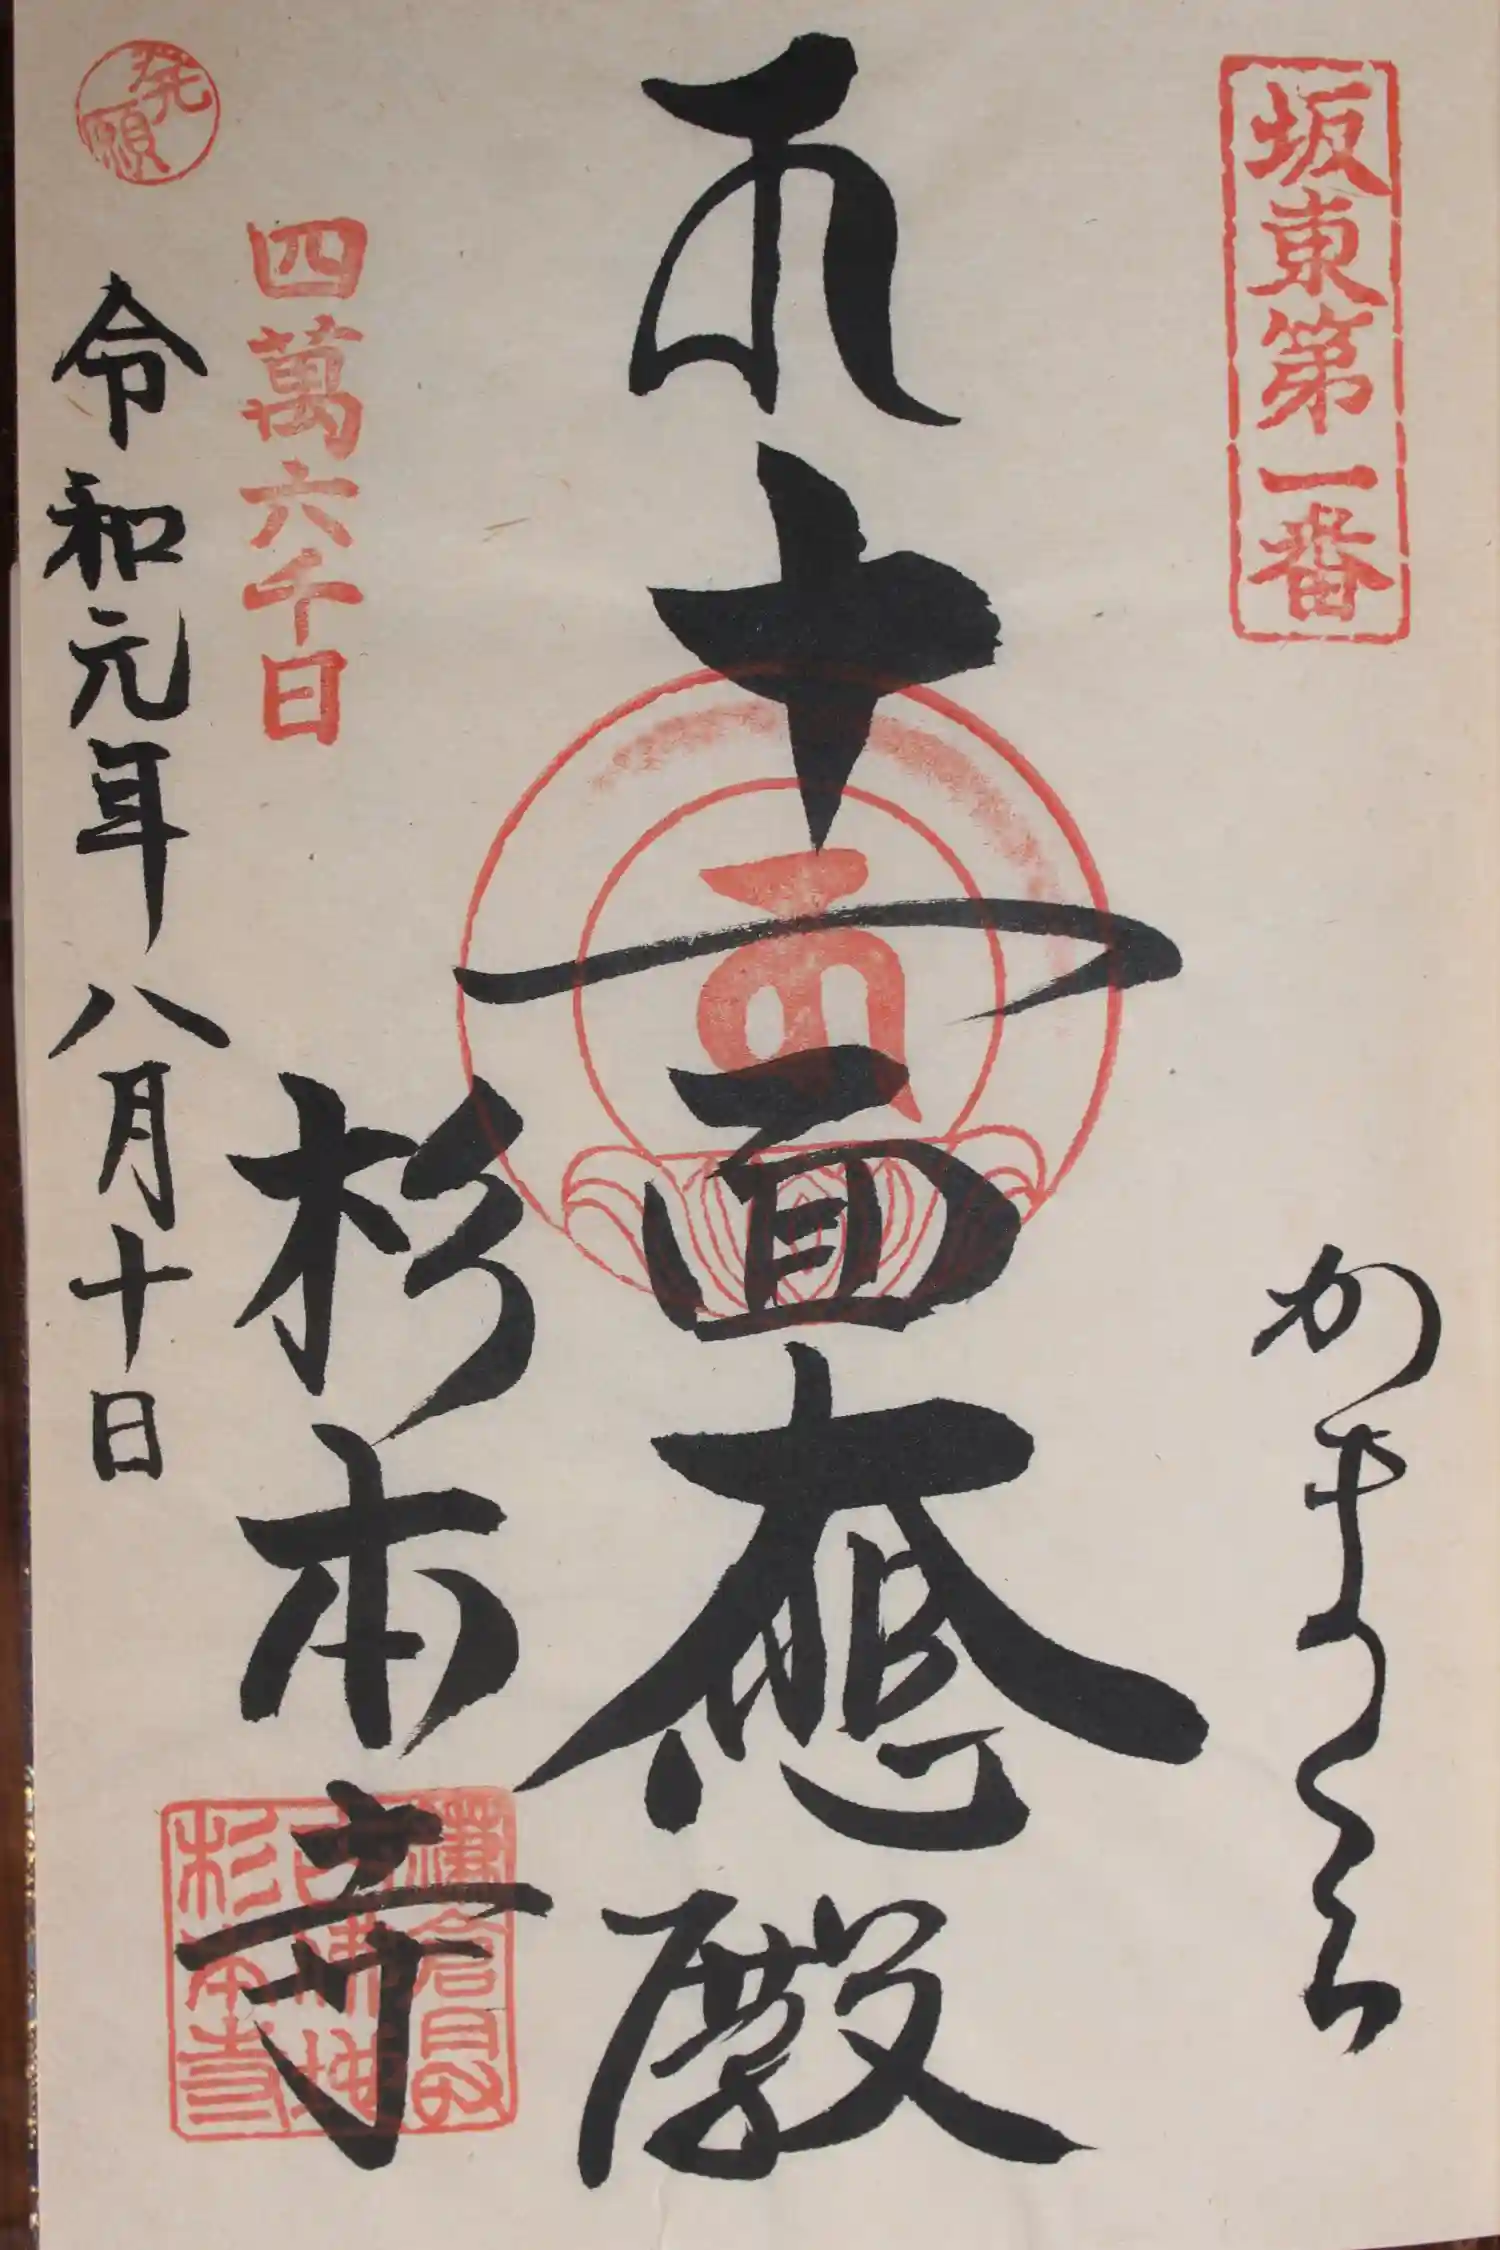 坂東第一番
かまくら
十一面大悲殿
四萬六千日
杉本寺
鎌倉最
古佛地
杉本寺
発願
令和元年八月十日